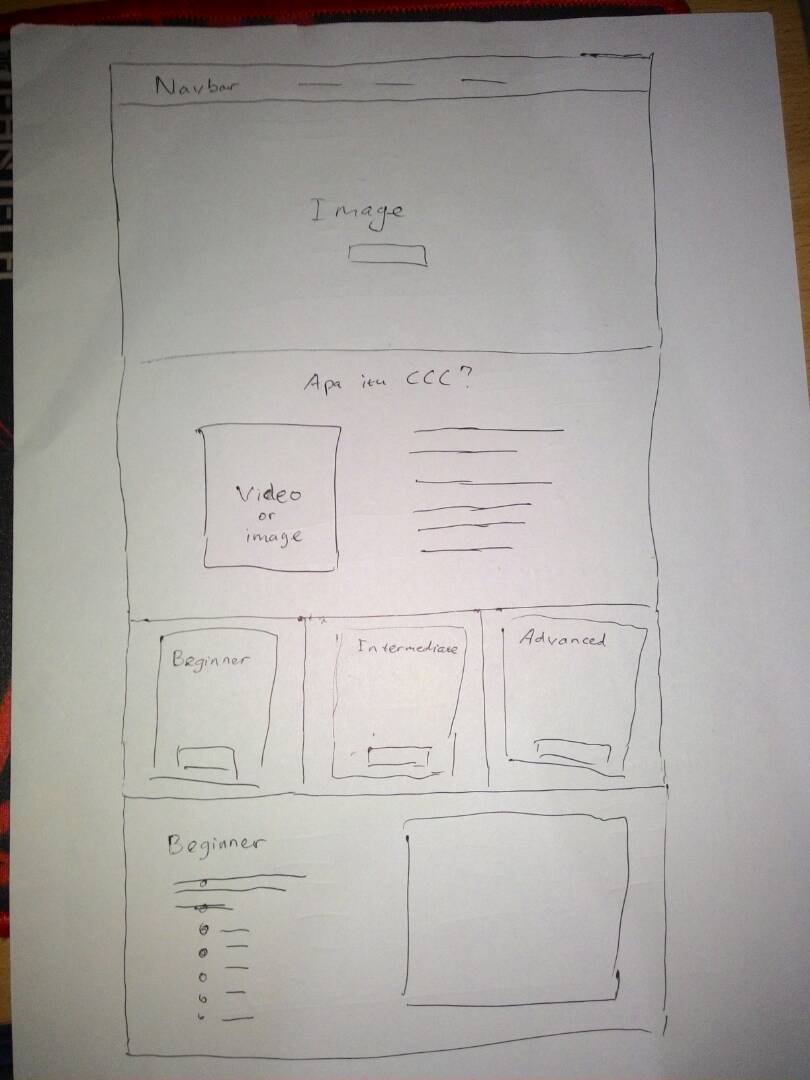 Navbar
Image
Apa itu CCC?
Video
or
image
Beginner
Intermediate
Advanced
Beginner